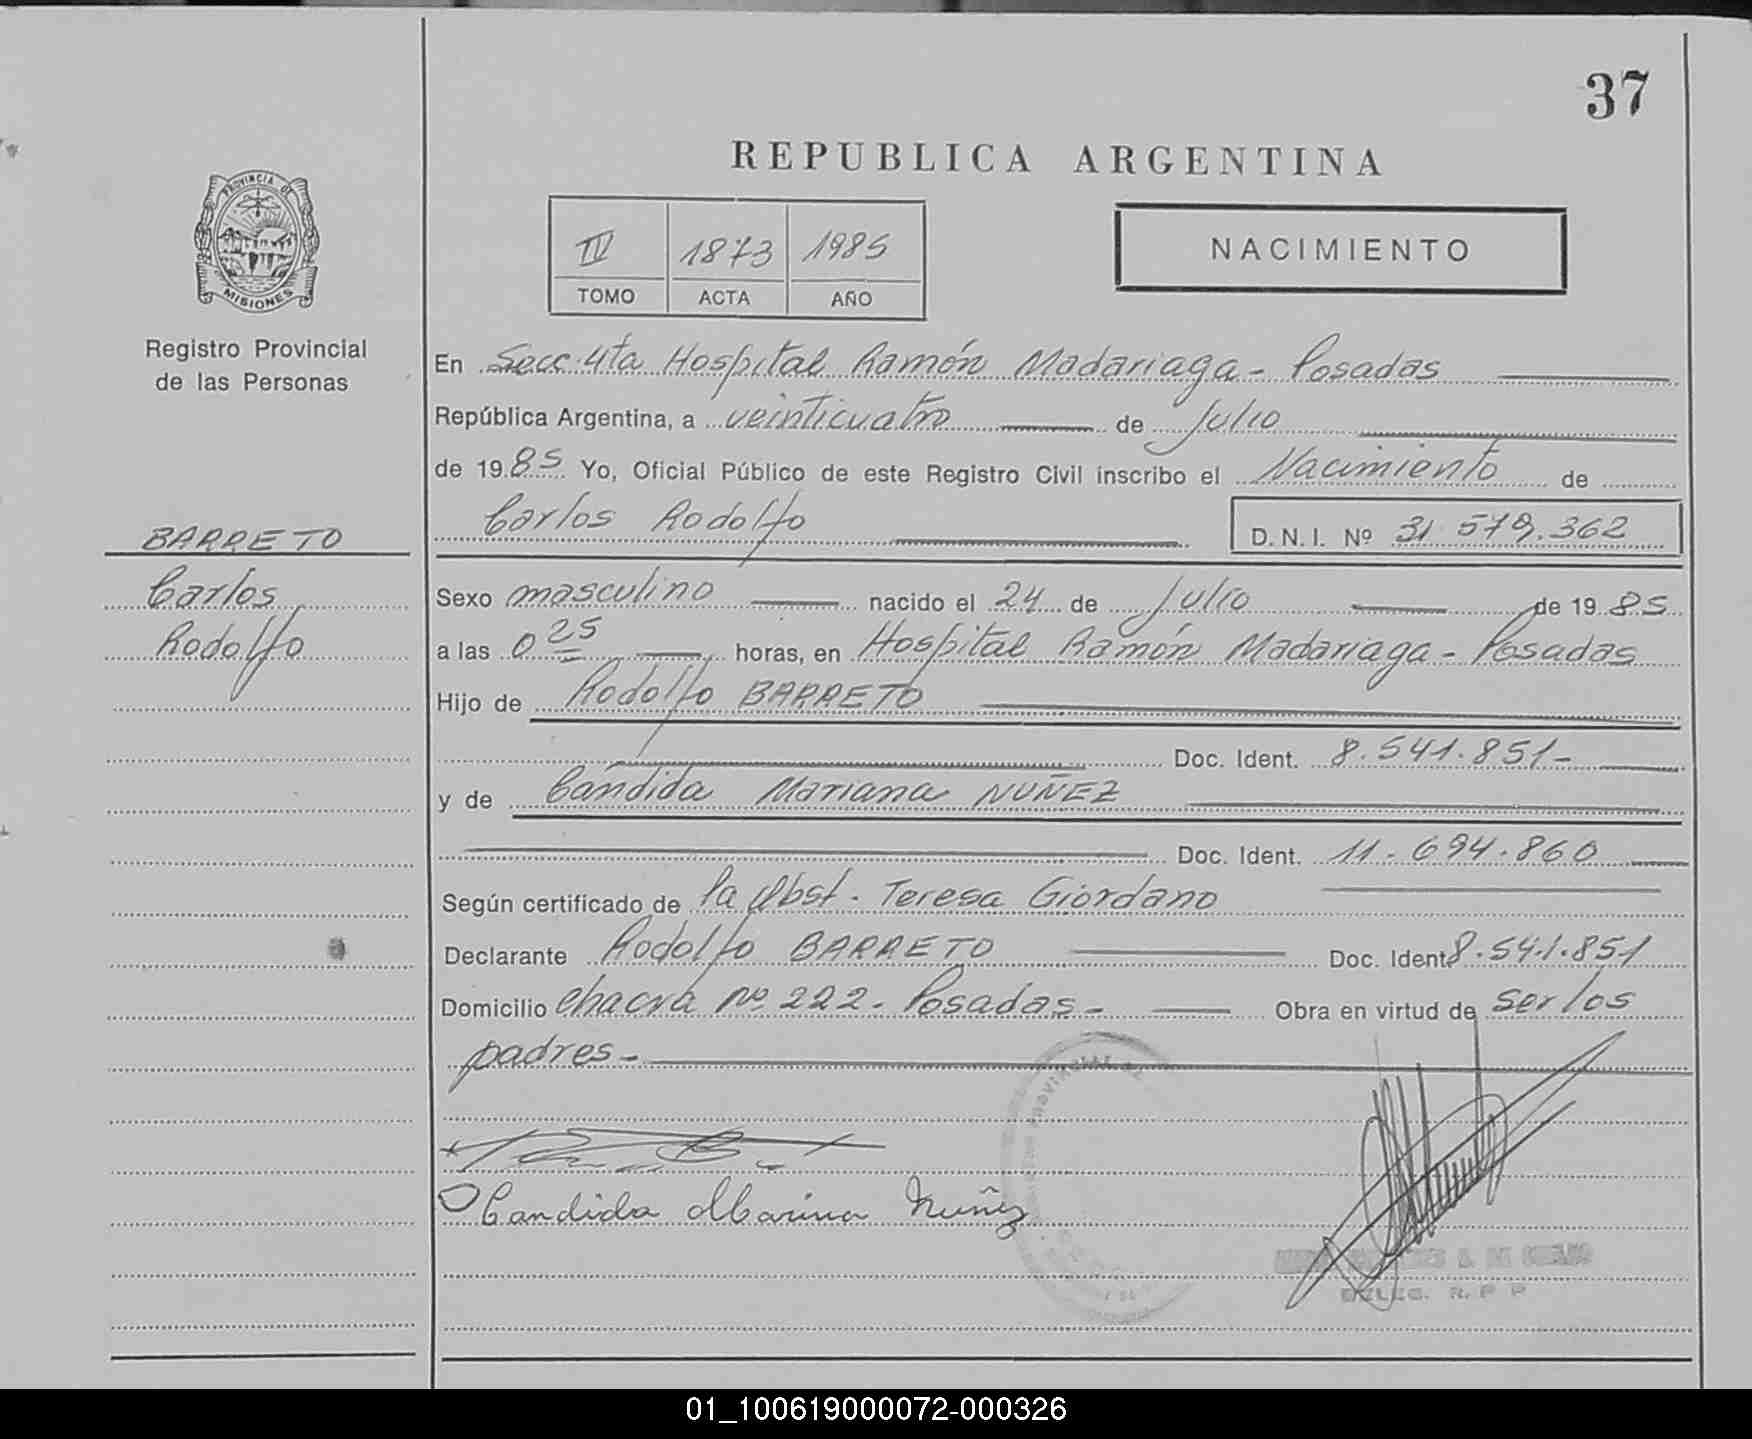 37
REPUBLICA ARGENTINA
PROVINCIA DE
MISIONES
Registro Provincial
de las Personas
IV 1873 1985
TOMO ACTA AÑO
NACIMIENTO
En Secc. 4ta Hospital Ramón Madariaga - Posadas
República Argentina, a veinticuatro de Julio
de 1985 Yo, Oficial Público de este Registro Civil inscribo el Nacimiento de
Carlos Rodolfo D.N.I. Nº 31.579.362
BARRETO
Carlos
Rodolfo
Sexo masculino nacido el 24 de Julio de 1985
a las 0 25 horas, en Hospital Ramón Madariaga - Posadas
Hijo de Rodolfo BARRETO
Doc. Ident. 8.541.851-
y de Cándida Mariana NUÑEZ
Doc. Ident. 11.694.860
Según certificado de la Obst. Teresa Giordano
Declarante Rodolfo BARRETO Doc. Ident. 8.541.851
Domicilio chacra Nº 222 - Posadas - Obra en virtud de ser los
padres -
Candida Marina Nuñez
PROVINCIAL DE
DELEG. R. P. P.
01_100619000072-000326